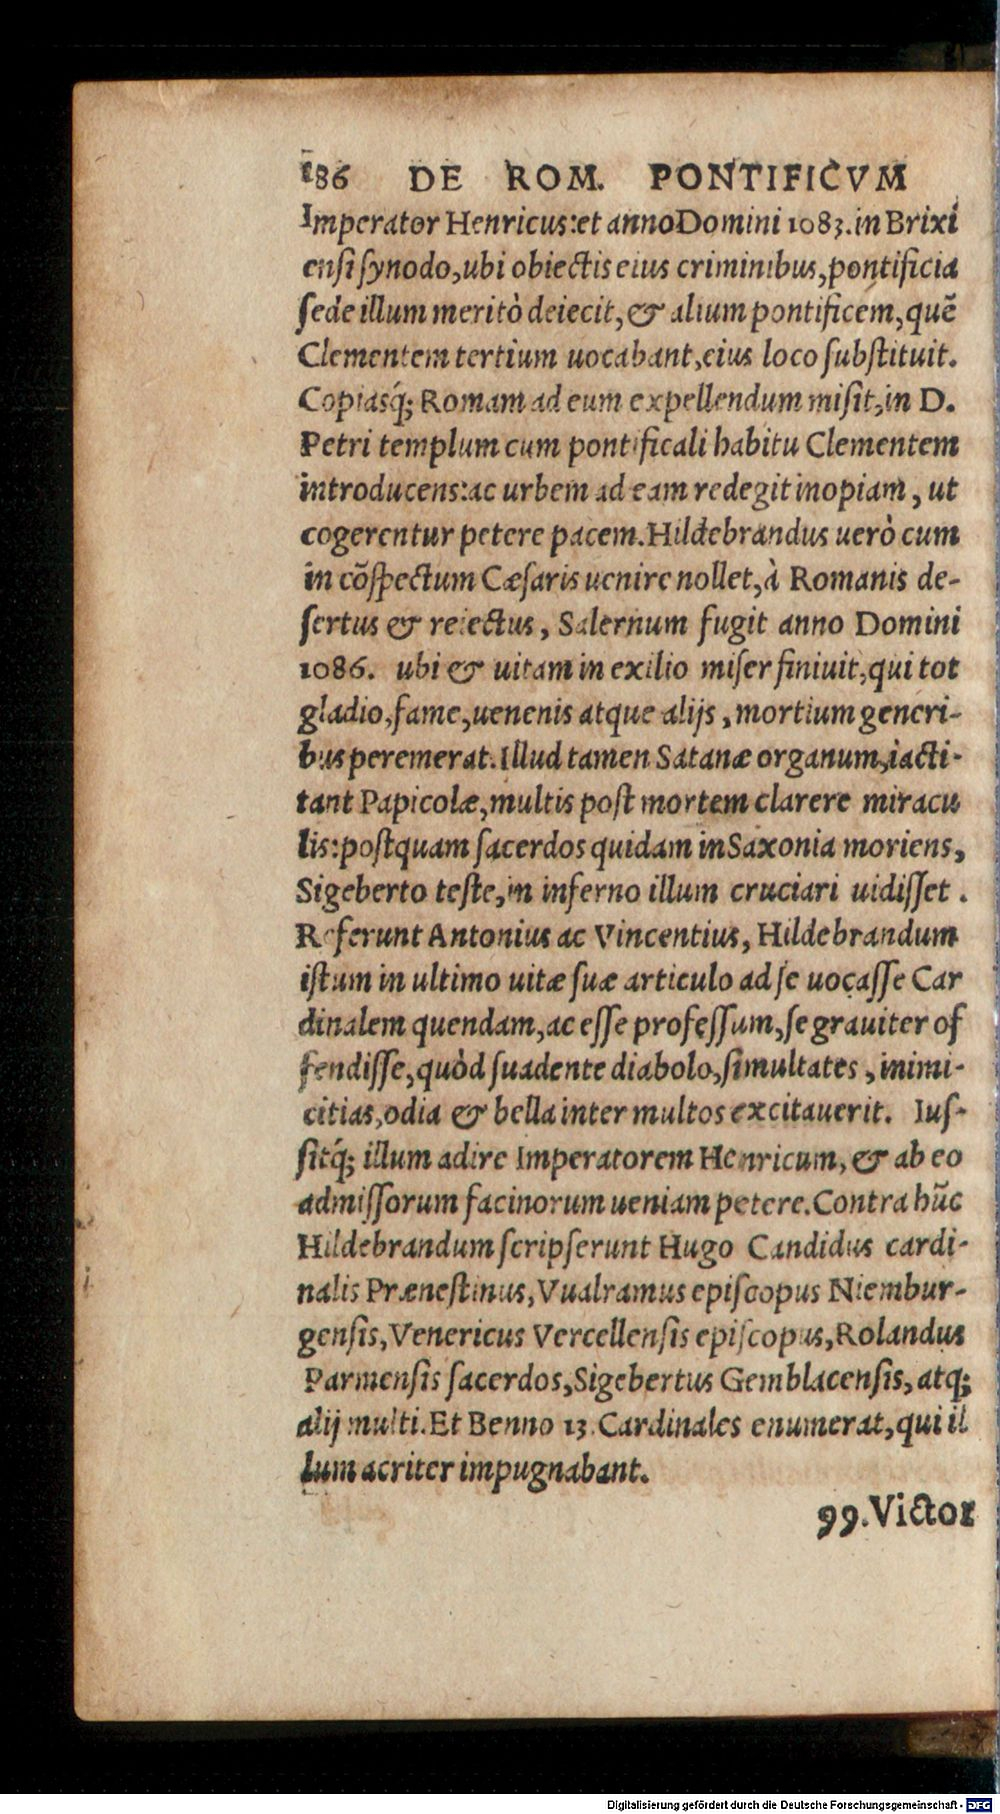 186 DE ROM. PONTIFICVM
Imperator Henricus:et anno Domini 1083.in Brixi
ensi synodo,ubi obiectis eius criminibus,pontificia
sede illum meritò deiecit,& alium pontificem,quẽ
Clementem tertium uocabant,eius loco substituit.
Copiasq́; Romam ad eum expellendum misit,in D.
Petri templum cum pontificali habitu Clementem
introducens:ac urbem ad eam redegit inopiam, ut
cogerentur petere pacem.Hildebrandus uerò cum
in cõspectum Cæsaris uenire nollet,à Romanis de-
sertus & reiectus, Salernum fugit anno Domini
1086. ubi & uitam in exilio miser finiuit,qui tot
gladio,fame,uenenis atque alijs, mortium generi-
bus peremerat.Illud tamen Satanæ organum,iacti-
tant Papicolæ,multis post mortem clarere miracu
lis:postquam sacerdos quidam in Saxonia moriens,
Sigeberto teste,in inferno illum cruciari uidisset.
Referunt Antonius ac Vincentius, Hildebrandum
istum in ultimo uitæ suæ articulo ad se uocasse Car
dinalem quendam,ac esse professum,se grauiter of
fendisse,quòd suadente diabolo,simultates, inimi-
citias,odia & bella inter multos excitauerit. Ius-
sitq́; illum adire Imperatorem Henricum, & ab eo
admissorum facinorum ueniam petere.Contra hũc
Hildebrandum scripserunt Hugo Candidus cardi-
nalis Prænestinus,Vualramus episcopus Niembur-
gensis,Venericus Vercellensis episcopus,Rolandus
Parmensis sacerdos,Sigebertus Gemblacensis, atq;
alij multi.Et Benno 13.Cardinales enumerat,qui il
lum acriter impugnabant.
99.Victor
Digitalisierung gefördert durch die Deutsche Forschungsgemeinschaft - DFG